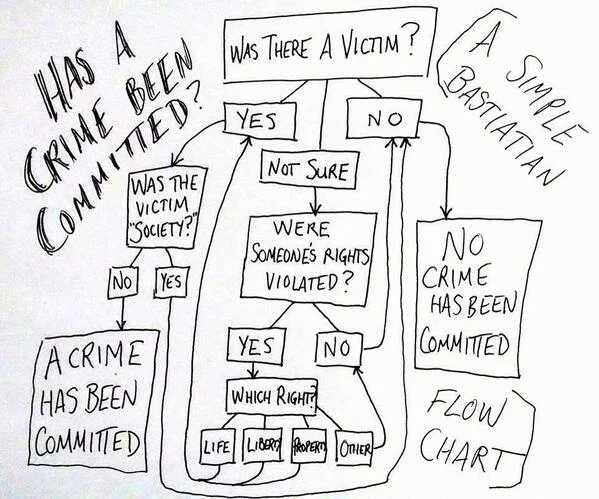 HAS A
CRIME BEEN
COMMITTED?
WAS THERE A VICTIM?
A SIMPLE
BASTIATIAN
YES
NO
NOT SURE
WAS THE
VICTIM
"SOCIETY?"
WERE
SOMEONE'S RIGHTS
VIOLATED?
NO
CRIME
HAS BEEN
COMMITTED
NO
YES
YES
NO
A CRIME
HAS BEEN
COMMITTED
WHICH RIGHT?
LIFE
LIBERTY
PROPERTY
OTHER
FLOW
CHART